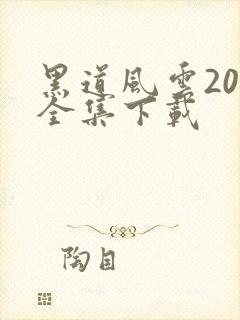 黑道风云20
全集下载
陶目